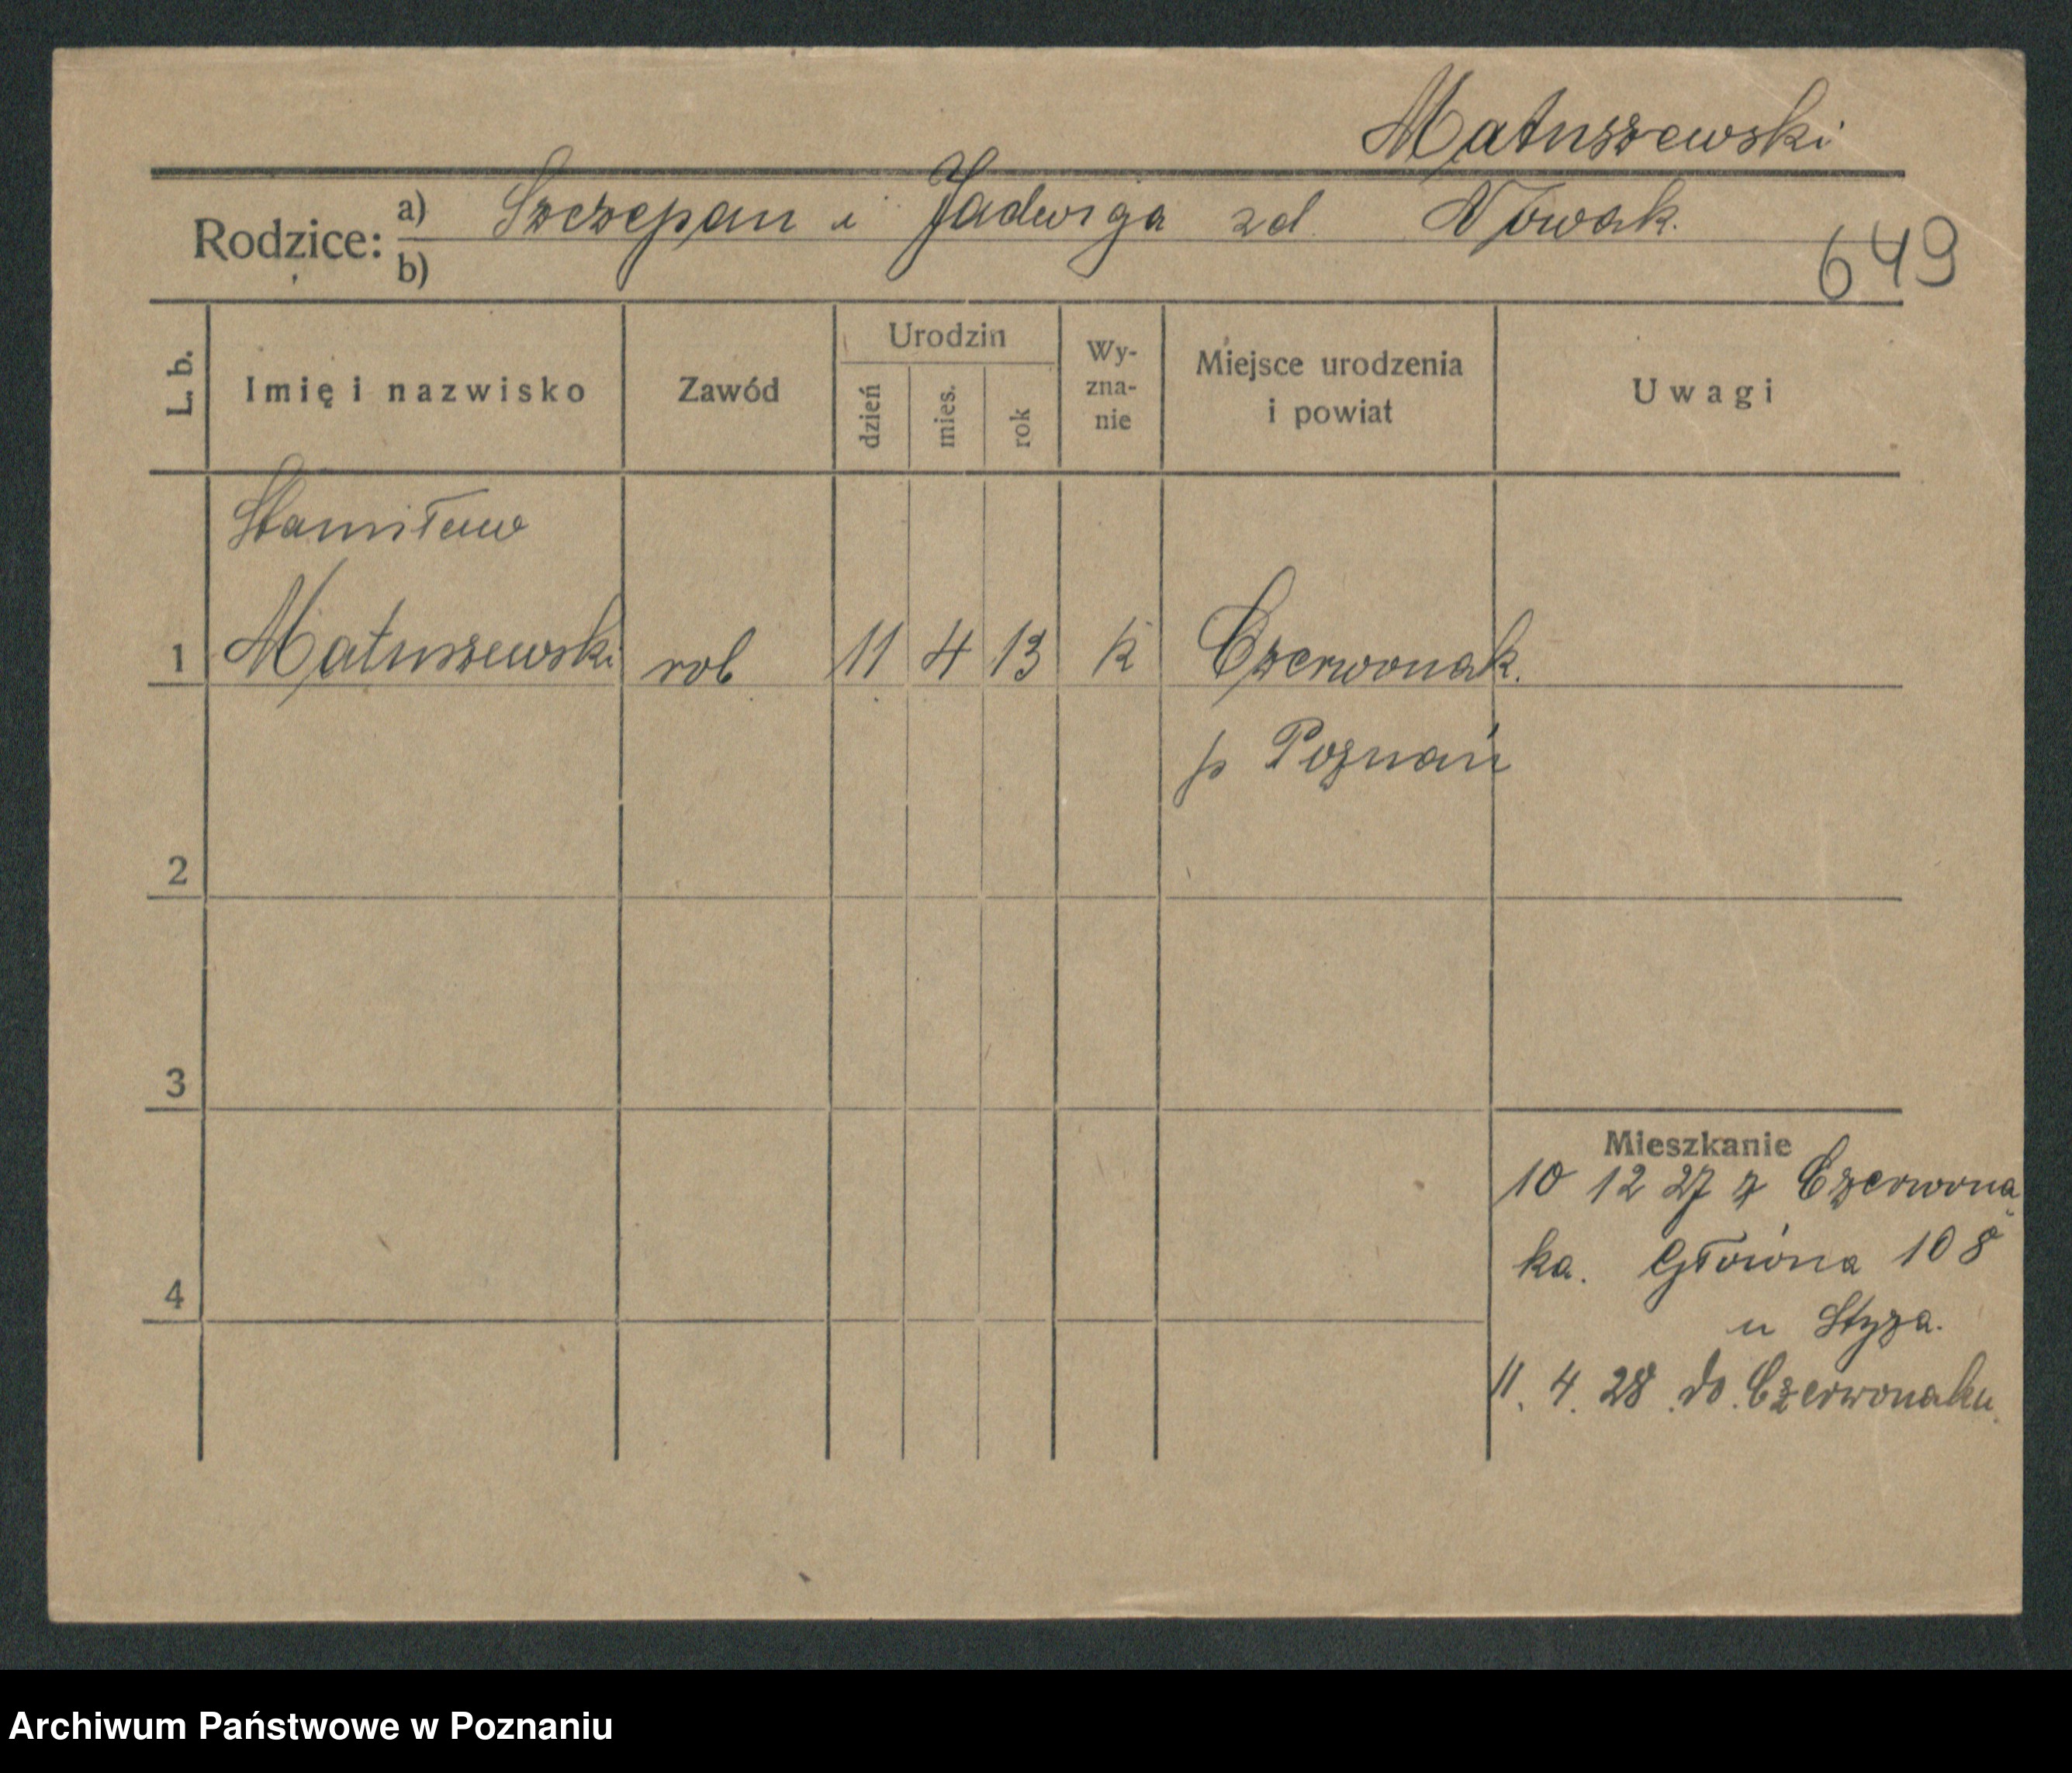 Matuszewski
Rodzice: a) Szczepan i Jadwiga zd. Nowak.
b)
649
L. b. Imię i nazwisko Zawód Urodzin dzień mies. rok Wy-zna-nie Miejsce urodzenia i powiat Uwagi
Stanisław
1 Matuszewski rob 11 4 13 k Czerwonak.
p Poznań
2
3
Mieszkanie
10 12 27 z Czerwona
ka. Główna 108
4
u Styza.
11. 4. 28. do Czerwonaku.
Archiwum Państwowe w Poznaniu